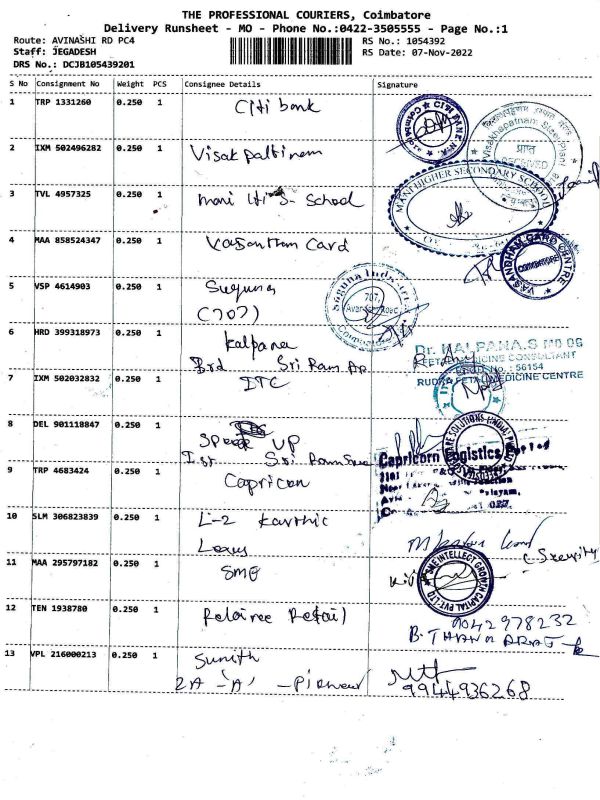 THE PROFESSIONAL COURIERS, Coimbatore
Delivery Runsheet - MO - Phone No.:0422-3505555 - Page No.:1
Route: AVINASHI RD PC4
RS No.: 1054392
Staff: JEGADESH
RS Date: 07-Nov-2022
DRS No.: DCJB105439201
S No Consignment No Weight PCS Consignee Details Signature
1 TRP 1331260 0.250 1 Citi bank
2 IXM 502496282 0.250 1 Visak pattinam
Visakhapatnam Steel Plant
प्राप्त
RECEIVED
3 TVL 4957325 0.250 1 mani Hr S- School
PC-
MANI HIGHER SECONDARY SCHOOL
4 MAA 858524347 0.250 1 Vasantham Card
VASANDHAM CARD CENTRE
COIMBATORE
5 VSP 4614903 0.250 1 Suguna
(707)
Suguna Industries
707,
6 HRD 399318973 0.250 1 Kalpana
3rd Sri Ram AP
Dr. KALPANA.S MD OG
FETAL MEDICINE CONSULTANT
REGD No.: 56154
RUDRA FETAL MEDICINE CENTRE
7 IXM 502032832 0.250 1 ITC
8 DEL 901118847 0.250 1
UP
1st Sri Ram
9 TRP 4683424 0.250 1 Capricon
Capricorn Logistics
10 SLM 306823839 0.250 1 L-2 Karthic
Lexus
(Security)
11 MAA 295797182 0.250 1 SME
SME INTELLECT GROWTH CAPITAL PVT. LTD
12 TEN 1938780 0.250 1 Retail
9042978232
13 VPL 216000213 0.250 1 Sumith
2A -'A' -
9944936268